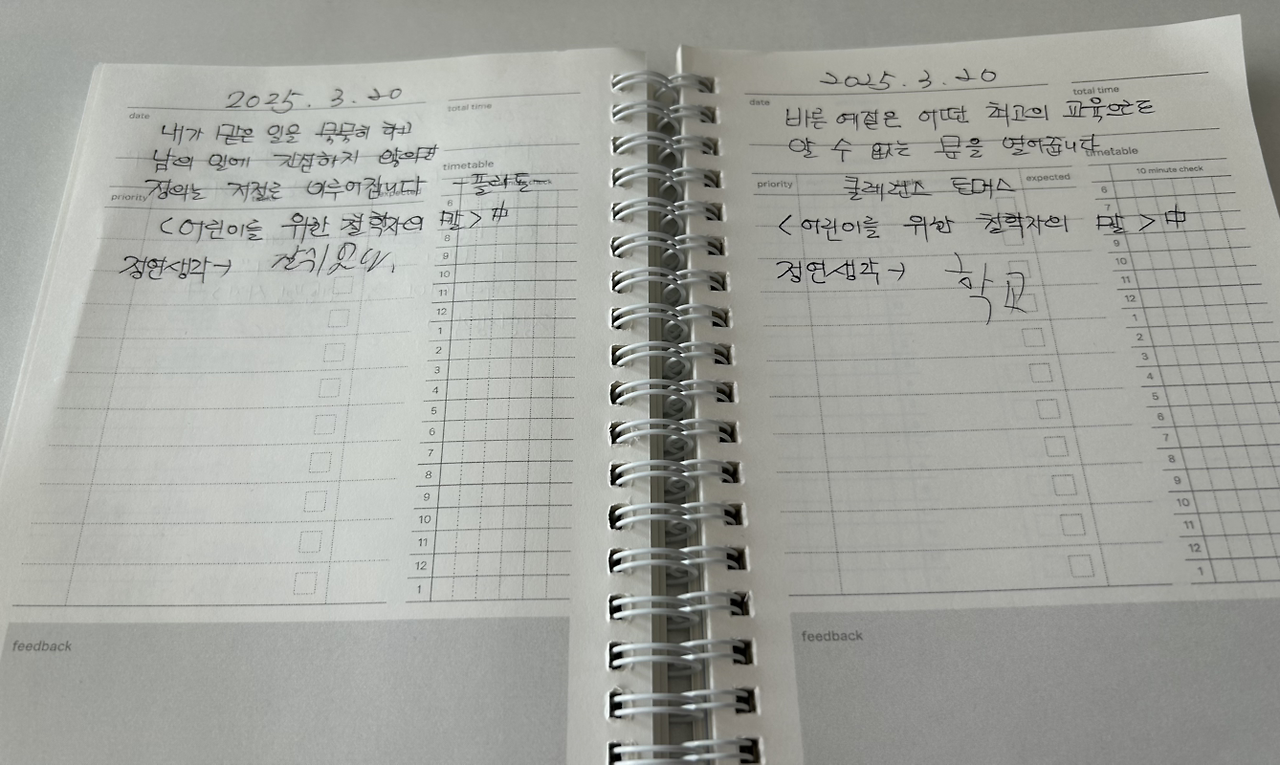 2025. 3. 20
date
total time
내가 맡은 일을 묵묵히 하고
남의 일에 간섭하지 않으면
timetable
정의는 저절로 이루어집니다 - 플라톤
priority
6
<어린이를 위한 철학자의 말> 中
8
정연생각→
9
10
11
12
1
2
3
4
5
6
7
8
9
10
11
12
1
feedback
2025. 3. 20
date
total time
바른 예절은 어떤 최고의 교육으로도
열 수 없는 문을 열어줍니다
timetable
priority
클레런스 토머스
expected
10 minute check
6
7
<어린이를 위한 철학자의 말> 中
정연생각→ 학교
9
10
11
12
1
2
3
4
5
6
7
8
9
10
11
12
1
feedback